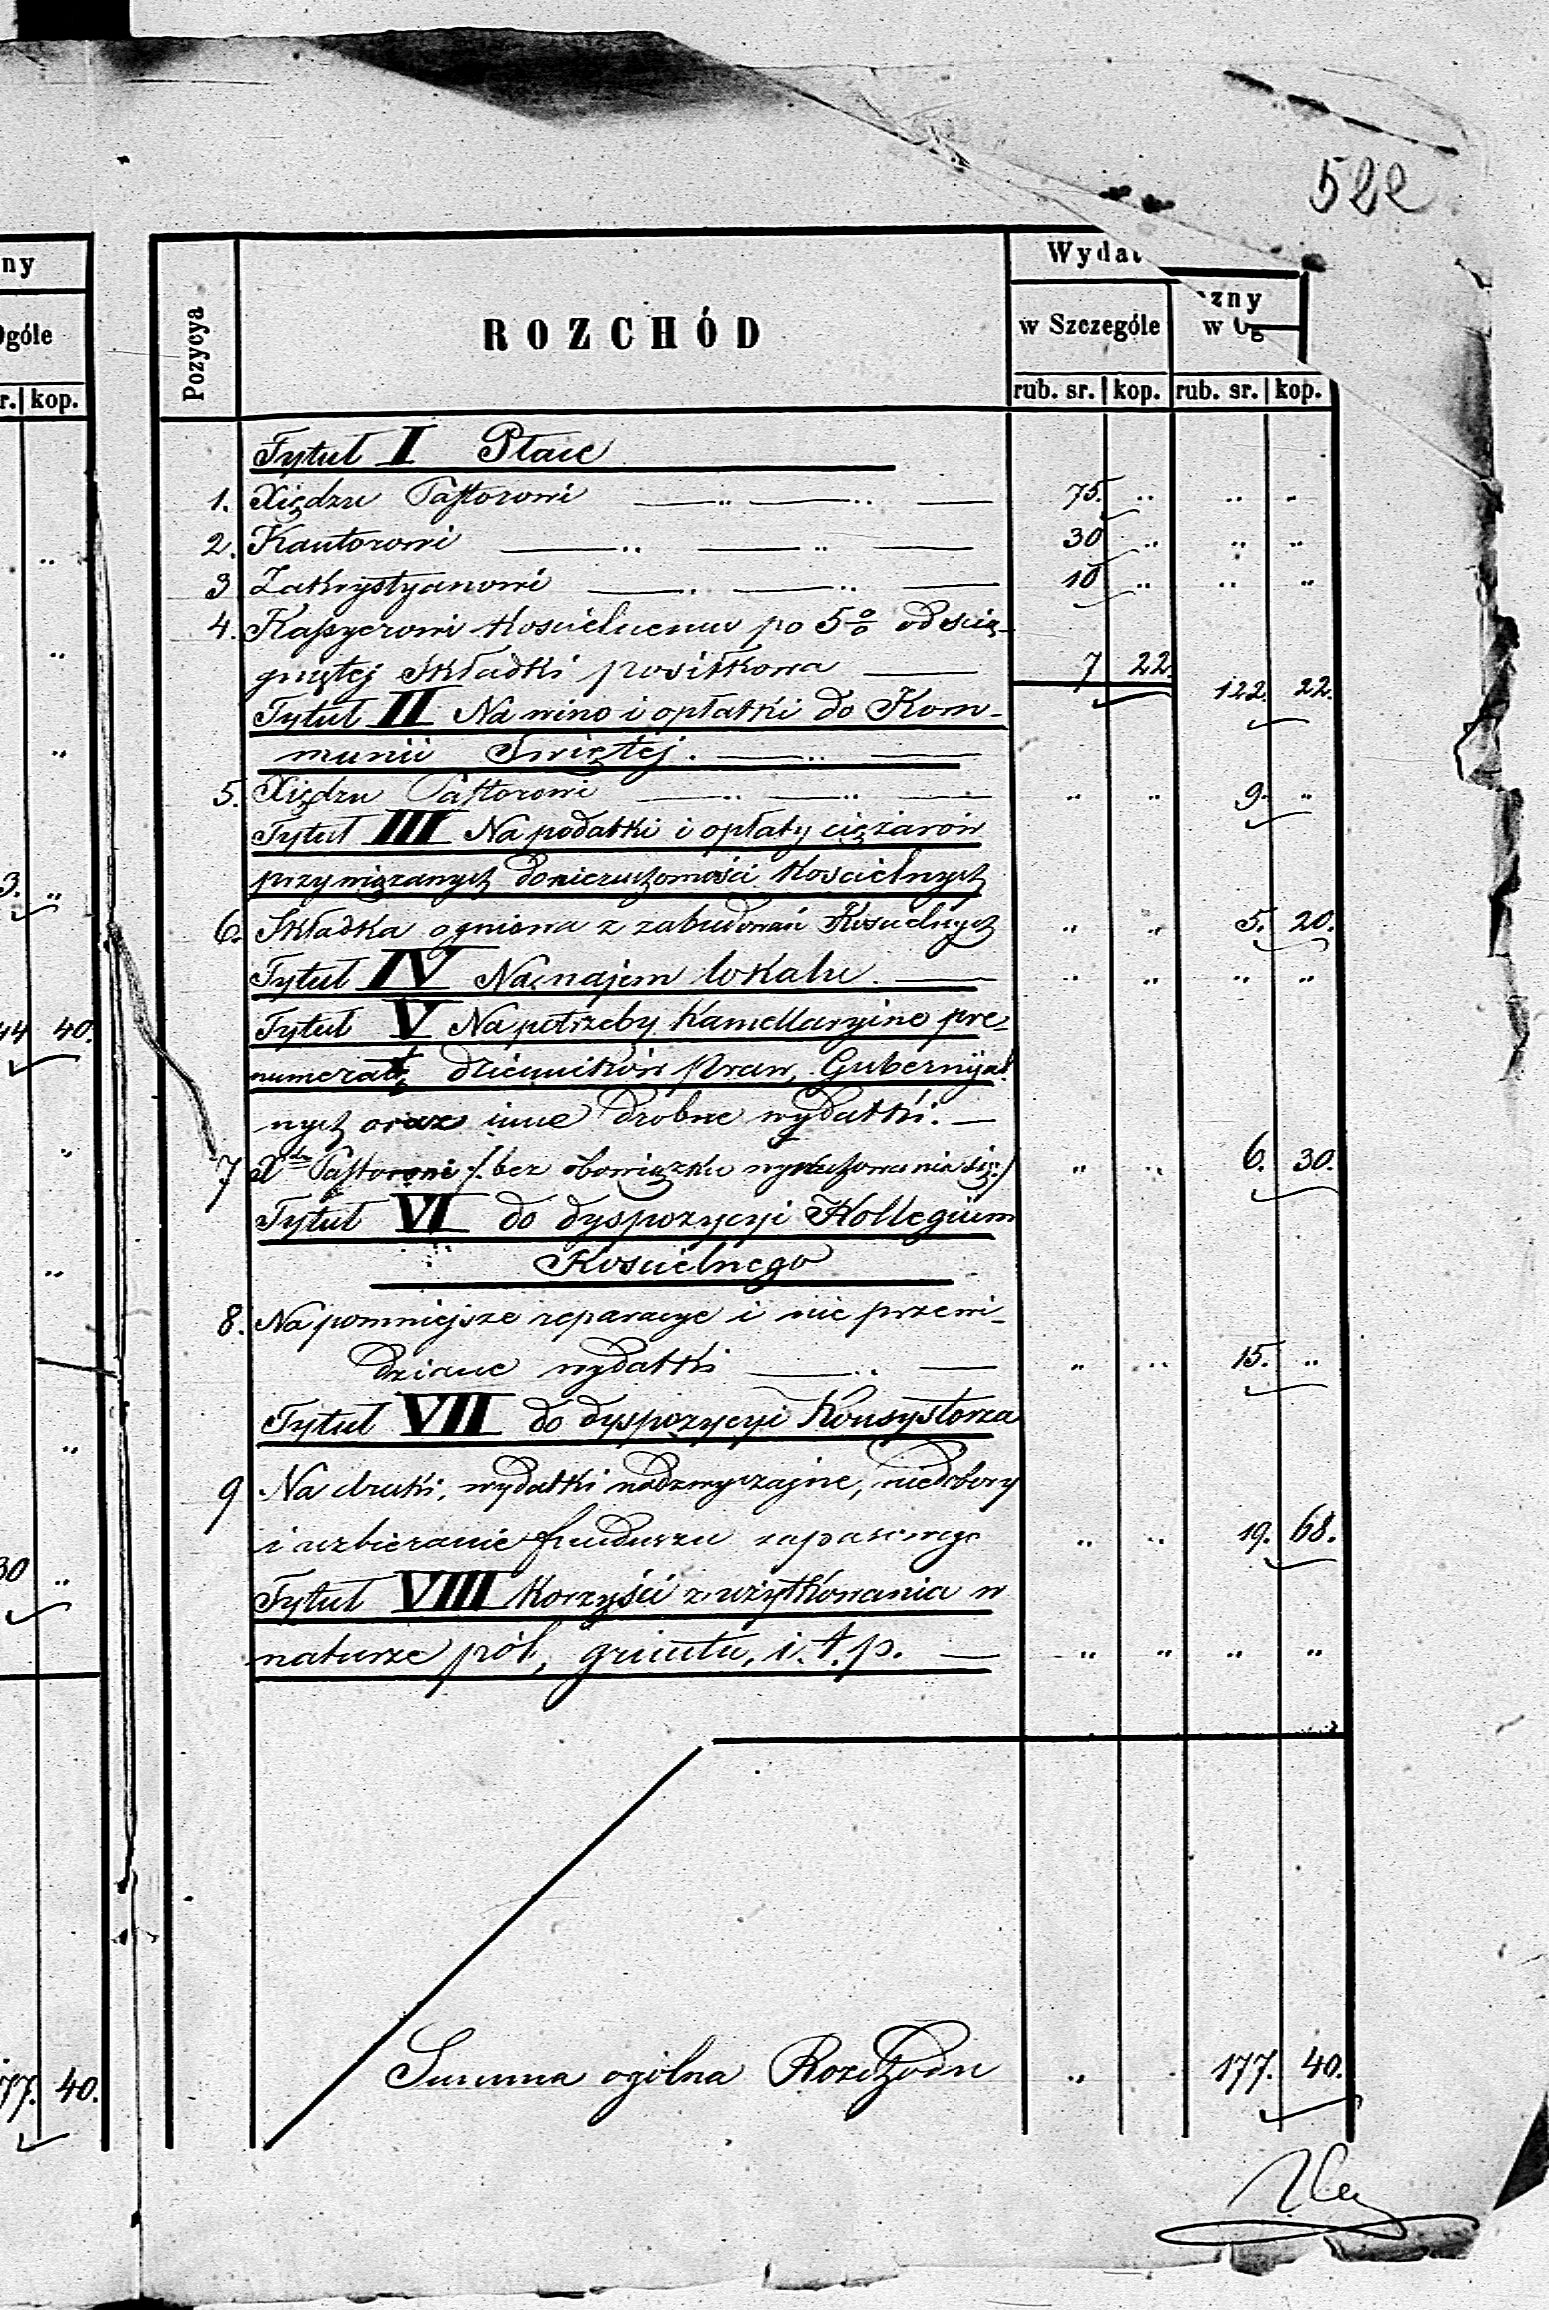 522
ny
Ogóle
r. kop.
3. "
44 40.
30 "
177. 40.
Pozycya
ROZCHÓD
Wydat zny
w Szczególe w Og
rub. sr. kop. rub. sr. kop.
Tytuł I Płace
1. Xiędzu Pastorowi 75. " " "
2. Kantorowi 30 " " "
3 Zakrystyanowi 10 " " "
4. Kassyerowi Kościelnemu po 5% od ścią-
gniętej Składki posiłkowa 7 22. 122. 22.
Tytuł II Na wino i opłatki do Kom-
munii Swiętej.
5. Xiędzu Pastorowi " " 9. "
Tytuł III Na podatki i opłaty ciężarów
przywiązanych do nieruchomości Kościelnych
6. Składka ogniowa z zabudowań Kościelnych " " 5. 20.
Tytuł IV Na najem lokalu. " " " "
Tytuł V Na potrzeby Kancellaryine pre-
numeratę dzienników Praw, Gubernijal-
nych oraz inne drobne wydatki.
7 Xdzu Pastorowi /. bez obowiązku wyrachowania się./ " " 6. 30.
Tytuł VI do dyspozycyi Kollegium
Kościelnego
8. Na pomniejsze reparacye i nie przewi-
dziane wydatki " " 15. "
Tytuł VII do dyspozycyi Konsystorza
9 Na druki, wydatki nadzwyczajne, niedobory
i uzbieranie funduszu zapasowego " " 19. 68.
Tytuł VIII Korzyści z użytkowania w
naturze pól, gruntu, i. t. p. " " " "
Summa ogólna Rozchodu " " 177. 40.